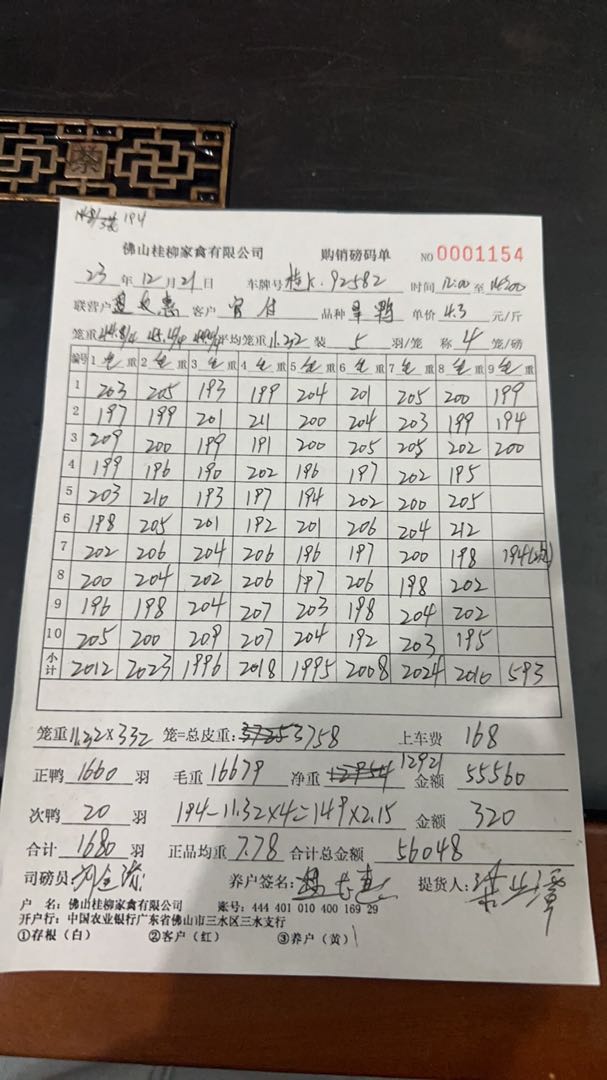 194
佛山桂柳家禽有限公司 购销磅码单 NO 0001154
23 年 12 月 21 日 车牌号 桂K·92582 时间 12:00 至 14:00
联营户 客户 品种 单价 4.3 元/斤
笼重 平均笼重 11.32 装 5 羽/笼 称 4 笼/磅
编号 1 重 2 重 3 重 4 重 5 重 6 重 7 重 8 重 9 重
1 203 205 193 199 204 201 205 200 199
2 197 199 201 211 200 204 203 199 194
3 209 200 199 191 200 205 205 202 200
4 199 196 190 202 196 197 202 195
5 203 210 193 197 194 202 200 205
6 198 205 201 192 201 206 204 212
7 202 206 204 206 196 197 200 198 194
8 200 204 202 206 197 206 198 202
9 196 198 204 207 203 198 204 202
10 205 200 209 207 204 192 203 195
小计 2012 2023 1996 2018 1995 2008 2024 2010 593
笼重 11.32×332 笼=总皮重: 3758 上车费 168
正鸭 1660 羽 毛重 16679 净重 12921 金额 55560
次鸭 20 羽 194-11.32×4=149×2.15 金额 320
合计 1680 羽 正品均重 7.78 合计总金额 56048
司磅员: 养户签名: 提货人:
户 名: 佛山桂柳家禽有限公司 账号: 444 401 010 400 169 29
开户行: 中国农业银行广东省佛山市三水区三水支行
①存根（白） ②客户（红） ③养户（黄）